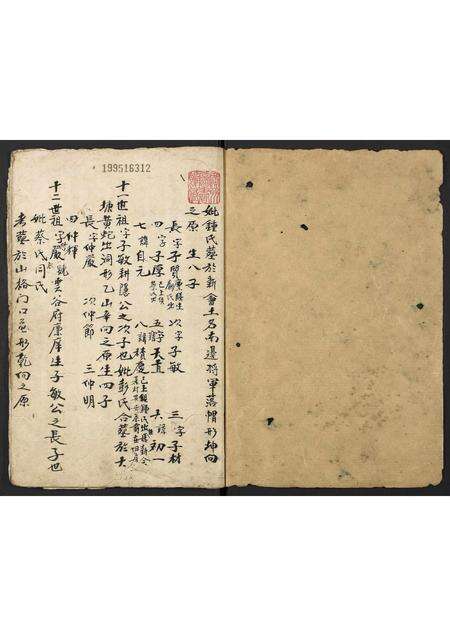 199516312
妣鍾氏墓於新會土名南邊將軍落帽形坤向
之原 生八子
長字子賢 次字子敏 三字子材
四字子厚 五諱天直 六諱初一
七諱自元 八諱積慶
十一世祖字子敏耕隱公之次子也妣彭氏合墓於大
塘黃蛇出洞形乙山辛向之原生四子
長字仲嚴 次仲節 三仲明
四仲輝
十二世祖字嚴號雲谷府庠庠生子敏公之長子也
妣蔡氏同氏
考墓於山格门口魚形乾向之原